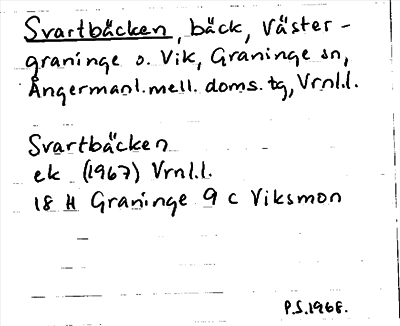 Svartbäcken, bäck, Väster-
graninge o. Vik, Graninge sn,
Ångermanl. mell. doms. tg, Vrnl.l.
Svartbäcken
ek (1967) Vrnl.l.
18 H Graninge 9 c Viksmon
P.S. 1968.